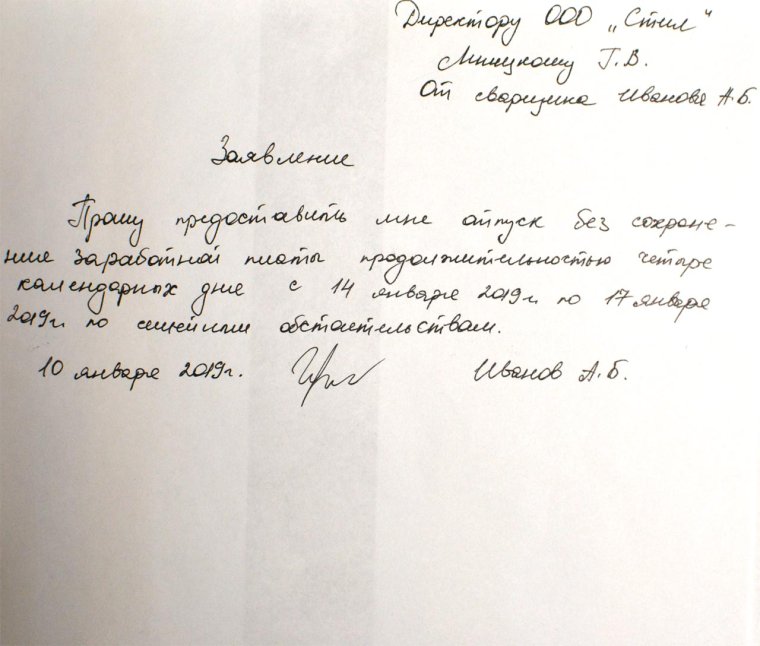 Директору ООО „Стил"
Миицкому Г.В.
От сварщика Иванова А.Б.
Заявление
Прошу предоставить мне отпуск без сохране-
ния заработной платы продолжительностью четыре
календарных дня с 14 января 2019г. по 17 января
2019г. по семейным обстоятельствам.
10 января 2019г. Иванов А.Б.